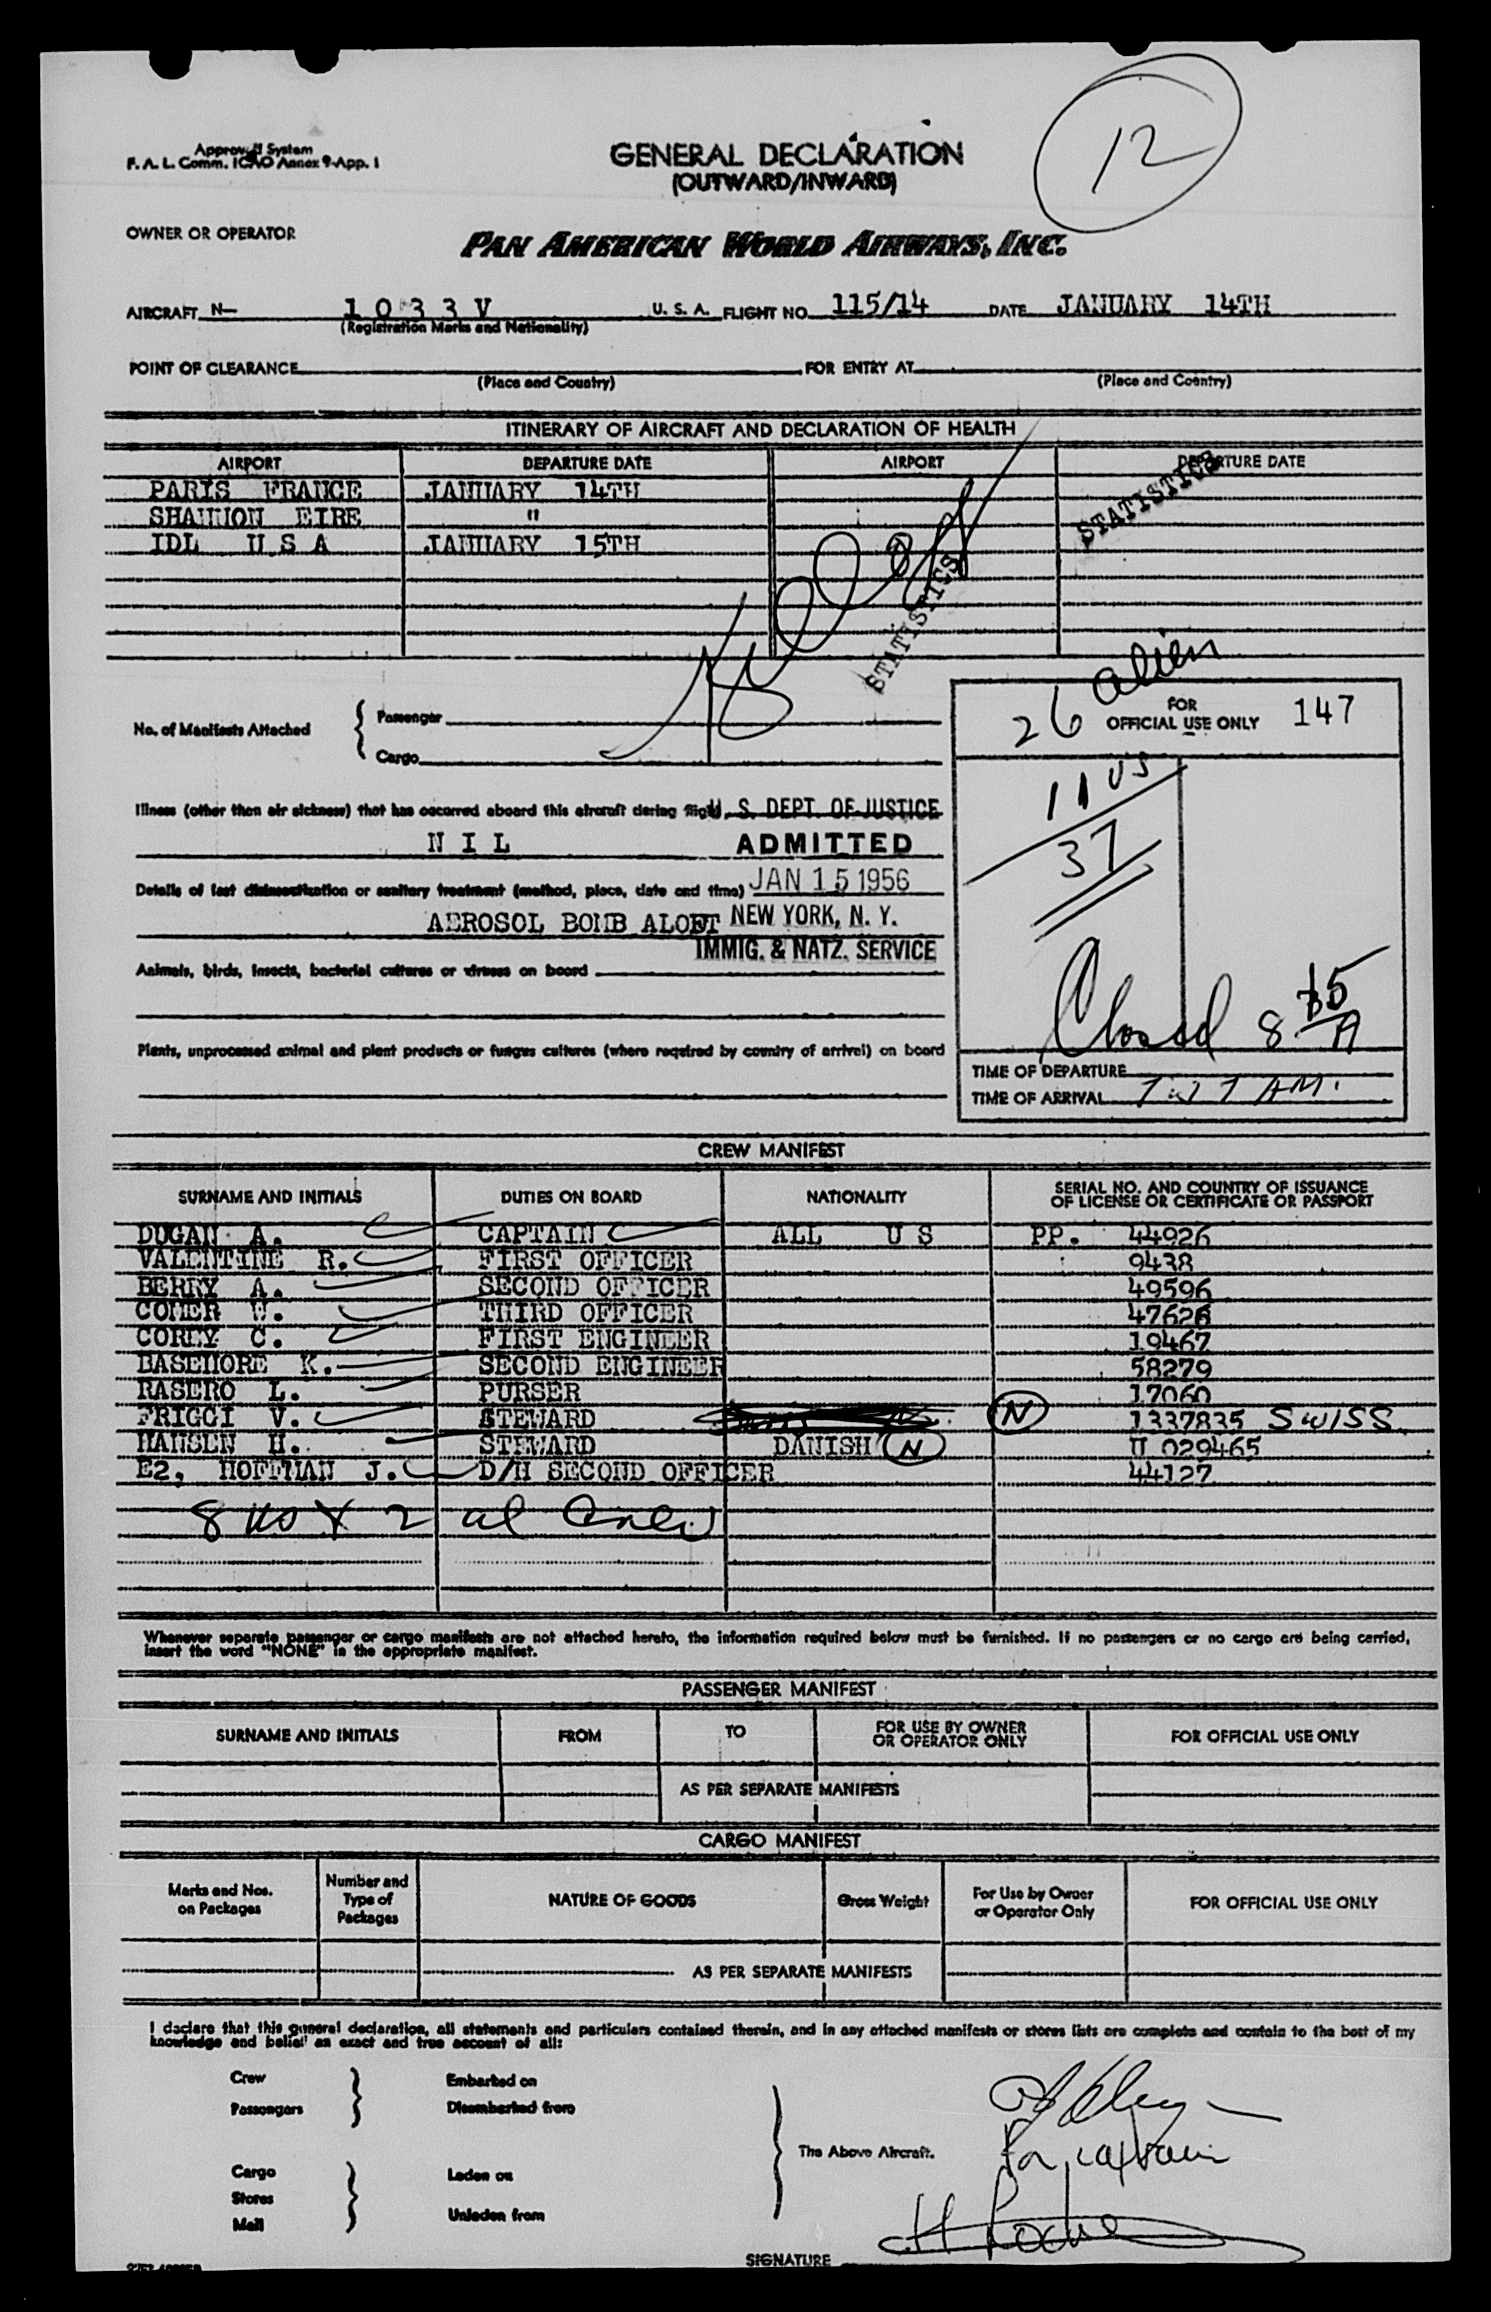 12
Approved System
F. A. L. Comm. ICAO Annex 9-App. 1
GENERAL DECLARATION
(OUTWARD/INWARD)
OWNER OR OPERATOR
PAN AMERICAN WORLD AIRWAYS, INC.
AIRCRAFT N- 1 0 3 3 V U. S. A. FLIGHT NO. 115/14 DATE JANUARY 14TH
(Registration Marks and Nationality)
POINT OF CLEARANCE FOR ENTRY AT
(Place and Country) (Place and Country)
ITINERARY OF AIRCRAFT AND DECLARATION OF HEALTH
AIRPORT DEPARTURE DATE AIRPORT DEPARTURE DATE
PARIS FRANCE JANUARY 14TH
SHANNON EIRE "
IDL U S A JANUARY 15TH
STATISTICS
STATISTICS
No. of Manifests Attached { Passenger
Cargo
26 alien
FOR
OFFICIAL USE ONLY 147
11 US
37
Illness (other than air sickness) that has occurred aboard this aircraft during flight
N I L
U. S. DEPT. OF JUSTICE
ADMITTED
JAN 15 1956
NEW YORK, N. Y.
IMMIG. & NATZ. SERVICE
Details of last disinsectization or sanitary treatment (method, place, date and time)
AEROSOL BOMB ALOFT
Animals, birds, insects, bacterial cultures or viruses on board
Plants, unprocessed animal and plant products or fungus cultures (where required by country of arrival) on board
Closed 8 A
TIME OF DEPARTURE
TIME OF ARRIVAL AM.
CREW MANIFEST
SURNAME AND INITIALS DUTIES ON BOARD NATIONALITY SERIAL NO. AND COUNTRY OF ISSUANCE
OF LICENSE OR CERTIFICATE OR PASSPORT
DUGAN A. CAPTAIN ALL U S PP. 44926
VALENTINE R. FIRST OFFICER 9438
BERRY A. SECOND OFFICER 49596
COMER W. THIRD OFFICER 47628
COREY C. FIRST ENGINEER 19467
BASEHORE K. SECOND ENGINEER 58279
RASERO L. PURSER 17060
FRIGGI V. STEWARD N 1337835 SWISS
HANSEN H. STEWARD DANISH N U 029465
E2, HOFFMAN J. D/H SECOND OFFICER 44127
8 us & 2 al Crew
Whenever separate passenger or cargo manifests are not attached hereto, the information required below must be furnished. If no passengers or no cargo are being carried,
insert the word "NONE" in the appropriate manifest.
PASSENGER MANIFEST
SURNAME AND INITIALS FROM TO FOR USE BY OWNER
OR OPERATOR ONLY FOR OFFICIAL USE ONLY
AS PER SEPARATE MANIFESTS
CARGO MANIFEST
Marks and Nos.
on Packages
Number and
Type of
Packages
NATURE OF GOODS
Gross Weight
For Use by Owner
or Operator Only
FOR OFFICIAL USE ONLY
AS PER SEPARATE MANIFESTS
I declare that this general declaration, all statements and particulars contained therein, and in any attached manifests or stores lists are complete and contain to the best of my
knowledge and belief an exact and true account of all:
Crew
Passengers
Embarked on
Disembarked from
Cargo
Stores
Mail
Laden on
Unladen from
The Above Aircraft.
for captain
SIGNATURE